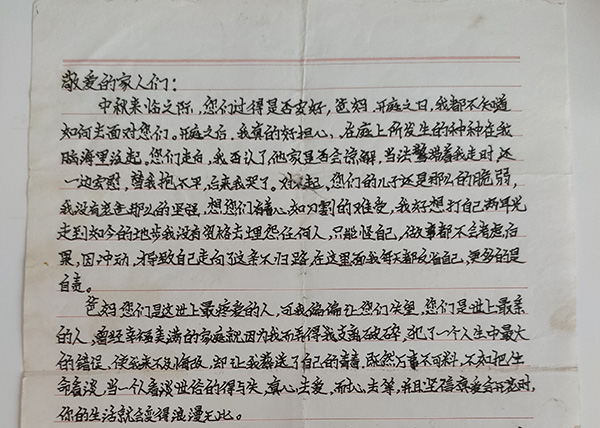 敬爱的家人们：
中秋来临之际，您们过得是否安好，爸妈.开庭之日，我都不知道
如何去面对您们。开庭之后.我真的好担心，在庭上所发生的种种在我
脑海里泛起。您们走后，我否认了他家是否会谅解，当法警带着我走时，还
一边安慰，替我抱不平，后来我哭了。对不起，您们的儿子还是那么的脆弱，
我没有爸爸那么的坚强，想您们有着心如刀割的难受，我好想打自己两耳光
走到如今的地步我没有资格去埋怨任何人，只能怪自己，做事都不会考虑后
果，因冲动，才导致自己走向了这条不归路在这里面我每天都反省自己，更多的是
自责。
爸妈您们是这世上最疼爱的人，可我偏偏让您们失望，您们是世上最亲
的人，曾经幸福美满的家庭就因为我而弄得支离破碎，犯了一个人生中最大
的错误，使我来不及悔改，却让我葬送了自己的青春。既然万事不可料，不如把生
命看淡，当一个人看淡世俗的得与失，真心去爱，耐心去等，并且坚信亲爱会开花时，
你的生活就会变得浪漫无比。